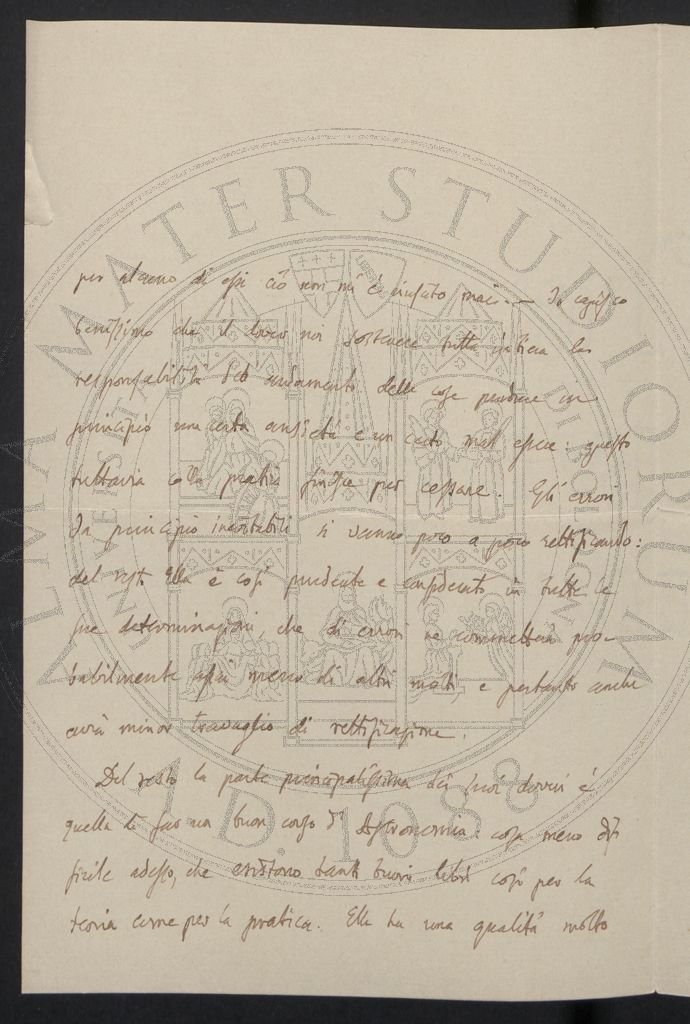 per alcuno di essi ciò non mi è riuscito mai. — Io capisco
benissimo che il dover noi sostenere tutta intiera la
responsabilità dell'andamento delle cose produce in
principio una certa ansietà e un certo mal essere: questo
tuttavia colla pratica finisce per cessare. Gli errori
da principio inevitabili si vanno poco a poco rettificando:
del resto Ella è così prudente e in tutte le
sue determinazioni, che di errori ne commetterà pro-
babilmente assai meno di altri molti, e pertanto anche
avrà minor travaglio di rettificazione.
Del resto la parte principalissima dei suoi doveri è
quella di fare un buon corso di Astronomia: cosa meno dif-
ficile adesso, che esistono tanti buoni libri così per la
teoria come per la pratica. Ella ha una qualità molto
ALMA MATER STUDIORUM
A.D. 1088